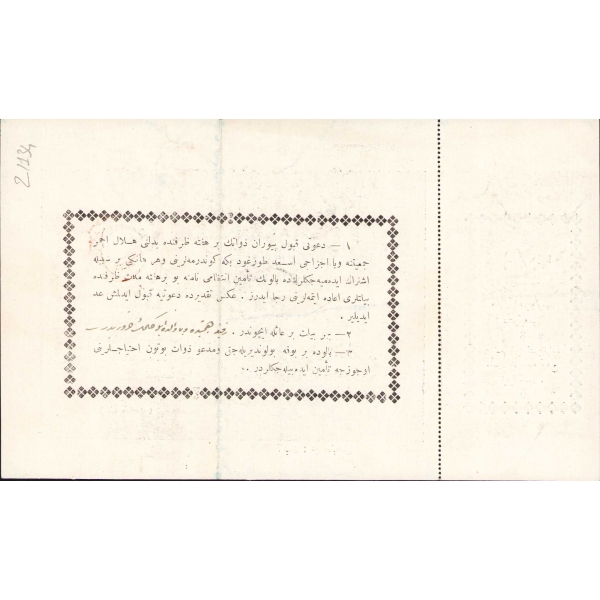 ١ — دعوتی قبول بیوران ذواتك بر هفته ظرفنده بدلنی هلال احمر
جمعیتنه ویا اجزاجی اسعد طوزغود بكه كوندرمه لرینی وهر هانكی بر سببله
اشتراك ایده میه جكلرك ده بالونك تأمین انتظامی نامنه بو بر هفته مدت ظرفنده
بیلتلری اعاده ایتمه لرینی رجا ایدرز . عكس تقدیرده دعوتیه قبول ایدلمش عد
ایدیلیر .
٢ — بر بیلت بر عائله ایچوندر .
٣ — بالوده بر بوفه بولوندیریله جق ومدعو ذوات بوتون احتیاجلرینی
اوجوزجه تأمین ایده بیله جكلردر .
2134